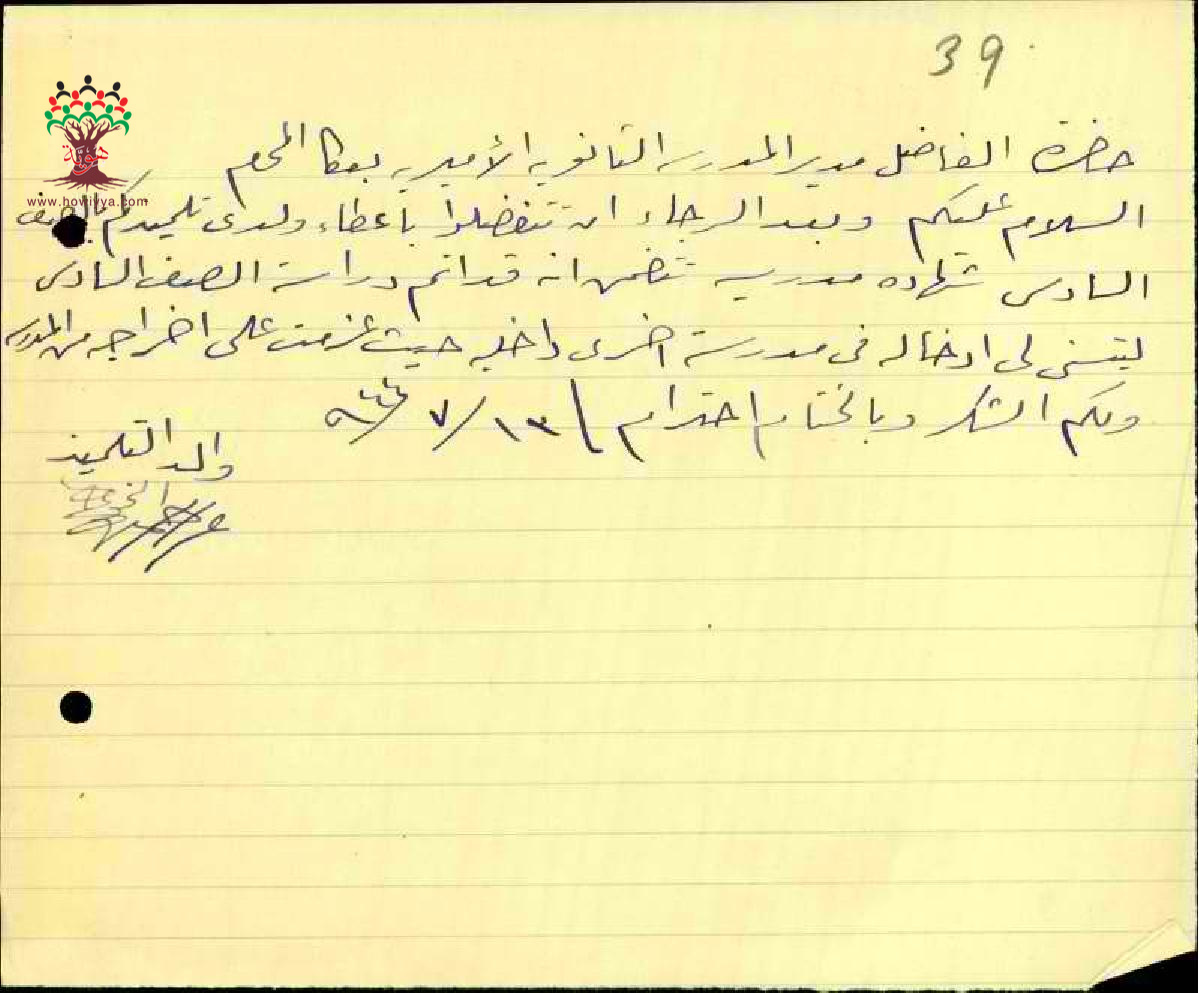 39
حضرة الفاضل مدير المدرسه الثانويه الأميريه بعكا المحترم
السلام عليكم وبعد الرجاء ان تتفضلوا بأعطاء ولدى تلميذكم بالصف
السادس شهاده مدرسيه تتضمن انه قد اتم دراسة الصف السادس
ليتسنى لى ادخاله فى مدرسة اخرى داخليه حيث عزمت على اخراجه من المدرسه
ولكم الشكر وبالختام احترام ١٣/٧/٩٤٤
والد التلميذ
هوية
www.howiyya.com